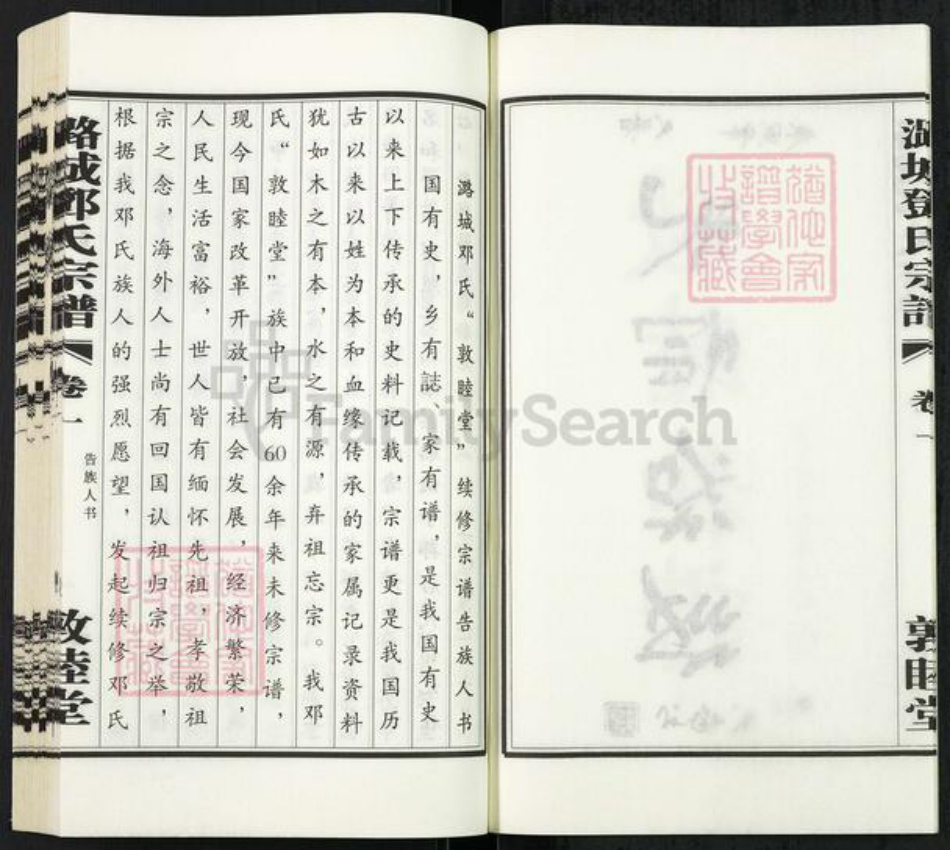 潞城鄧氏宗譜
卷一
敦睦堂
潞城邓氏“敦睦堂”续修宗谱告族人书
国有史，乡有誌、家有谱，是我国有史
以来上下传承的史料记载，宗谱更是我国历
古以来以姓为本和血缘传承的家属记录资料
犹如木之有本，水之有源，弃祖忘宗。我邓
氏“敦睦堂”族中已有60余年来未修宗谱，
现今国家改革开放，社会发展，经济繁荣，
人民生活富裕，世人皆有缅怀先祖，孝敬祖
宗之念，海外人士尚有回国认祖归宗之举，
根据我邓氏族人的强烈愿望，发起续修邓氏
告族人书
潞城邓氏宗谱
卷一
敦睦堂
FamilySearch